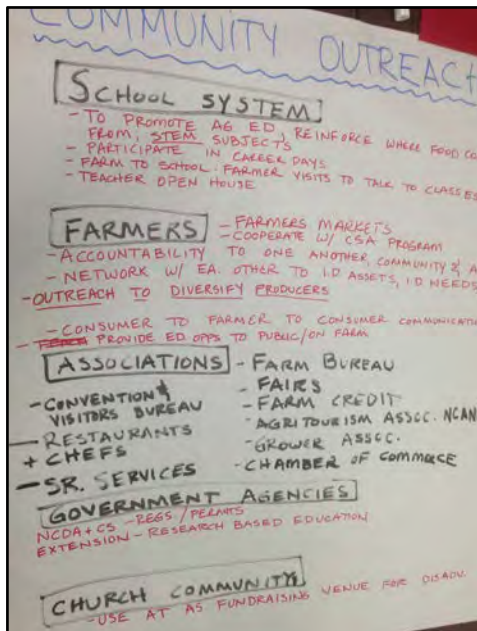 COMMUNITY OUTREACH
SCHOOL SYSTEM
- TO PROMOTE AG ED, REINFORCE WHERE FOOD CO
FROM, STEM SUBJECTS
- PARTICIPATE IN CAREER DAYS
- FARM TO SCHOOL: FARMER VISITS TO TALK TO CLASSES
- TEACHER OPEN HOUSE
FARMERS
- FARMERS MARKETS
- COOPERATE W/ CSA PROGRAM
- ACCOUNTABILITY TO ONE ANOTHER, COMMUNITY & A
- NETWORK W/ EA. OTHER TO I.D ASSETS, I.D NEEDS
- OUTREACH TO DIVERSIFY PRODUCERS
- CONSUMER TO FARMER TO CONSUMER COMMUNICATIO
- PROVIDE ED OPPS TO PUBLIC/ON FARM
ASSOCIATIONS
- CONVENTION &
VISITORS BUREAU
- RESTAURANTS
+ CHEFS
- SR. SERVICES
- FARM BUREAU
- FAIRS
- FARM CREDIT
- AGRITOURISM ASSCC. NCAN
- GROWER ASSCC.
- CHAMBER OF COMMERCE
GOVERNMENT AGENCIES
NCDA+CS - REGS/PERMITS
EXTENSION - RESEARCH BASED EDUCATION
CHURCH COMMUNITY
- USE AT AS FUNDRAISING VENUE FOR DISADV.